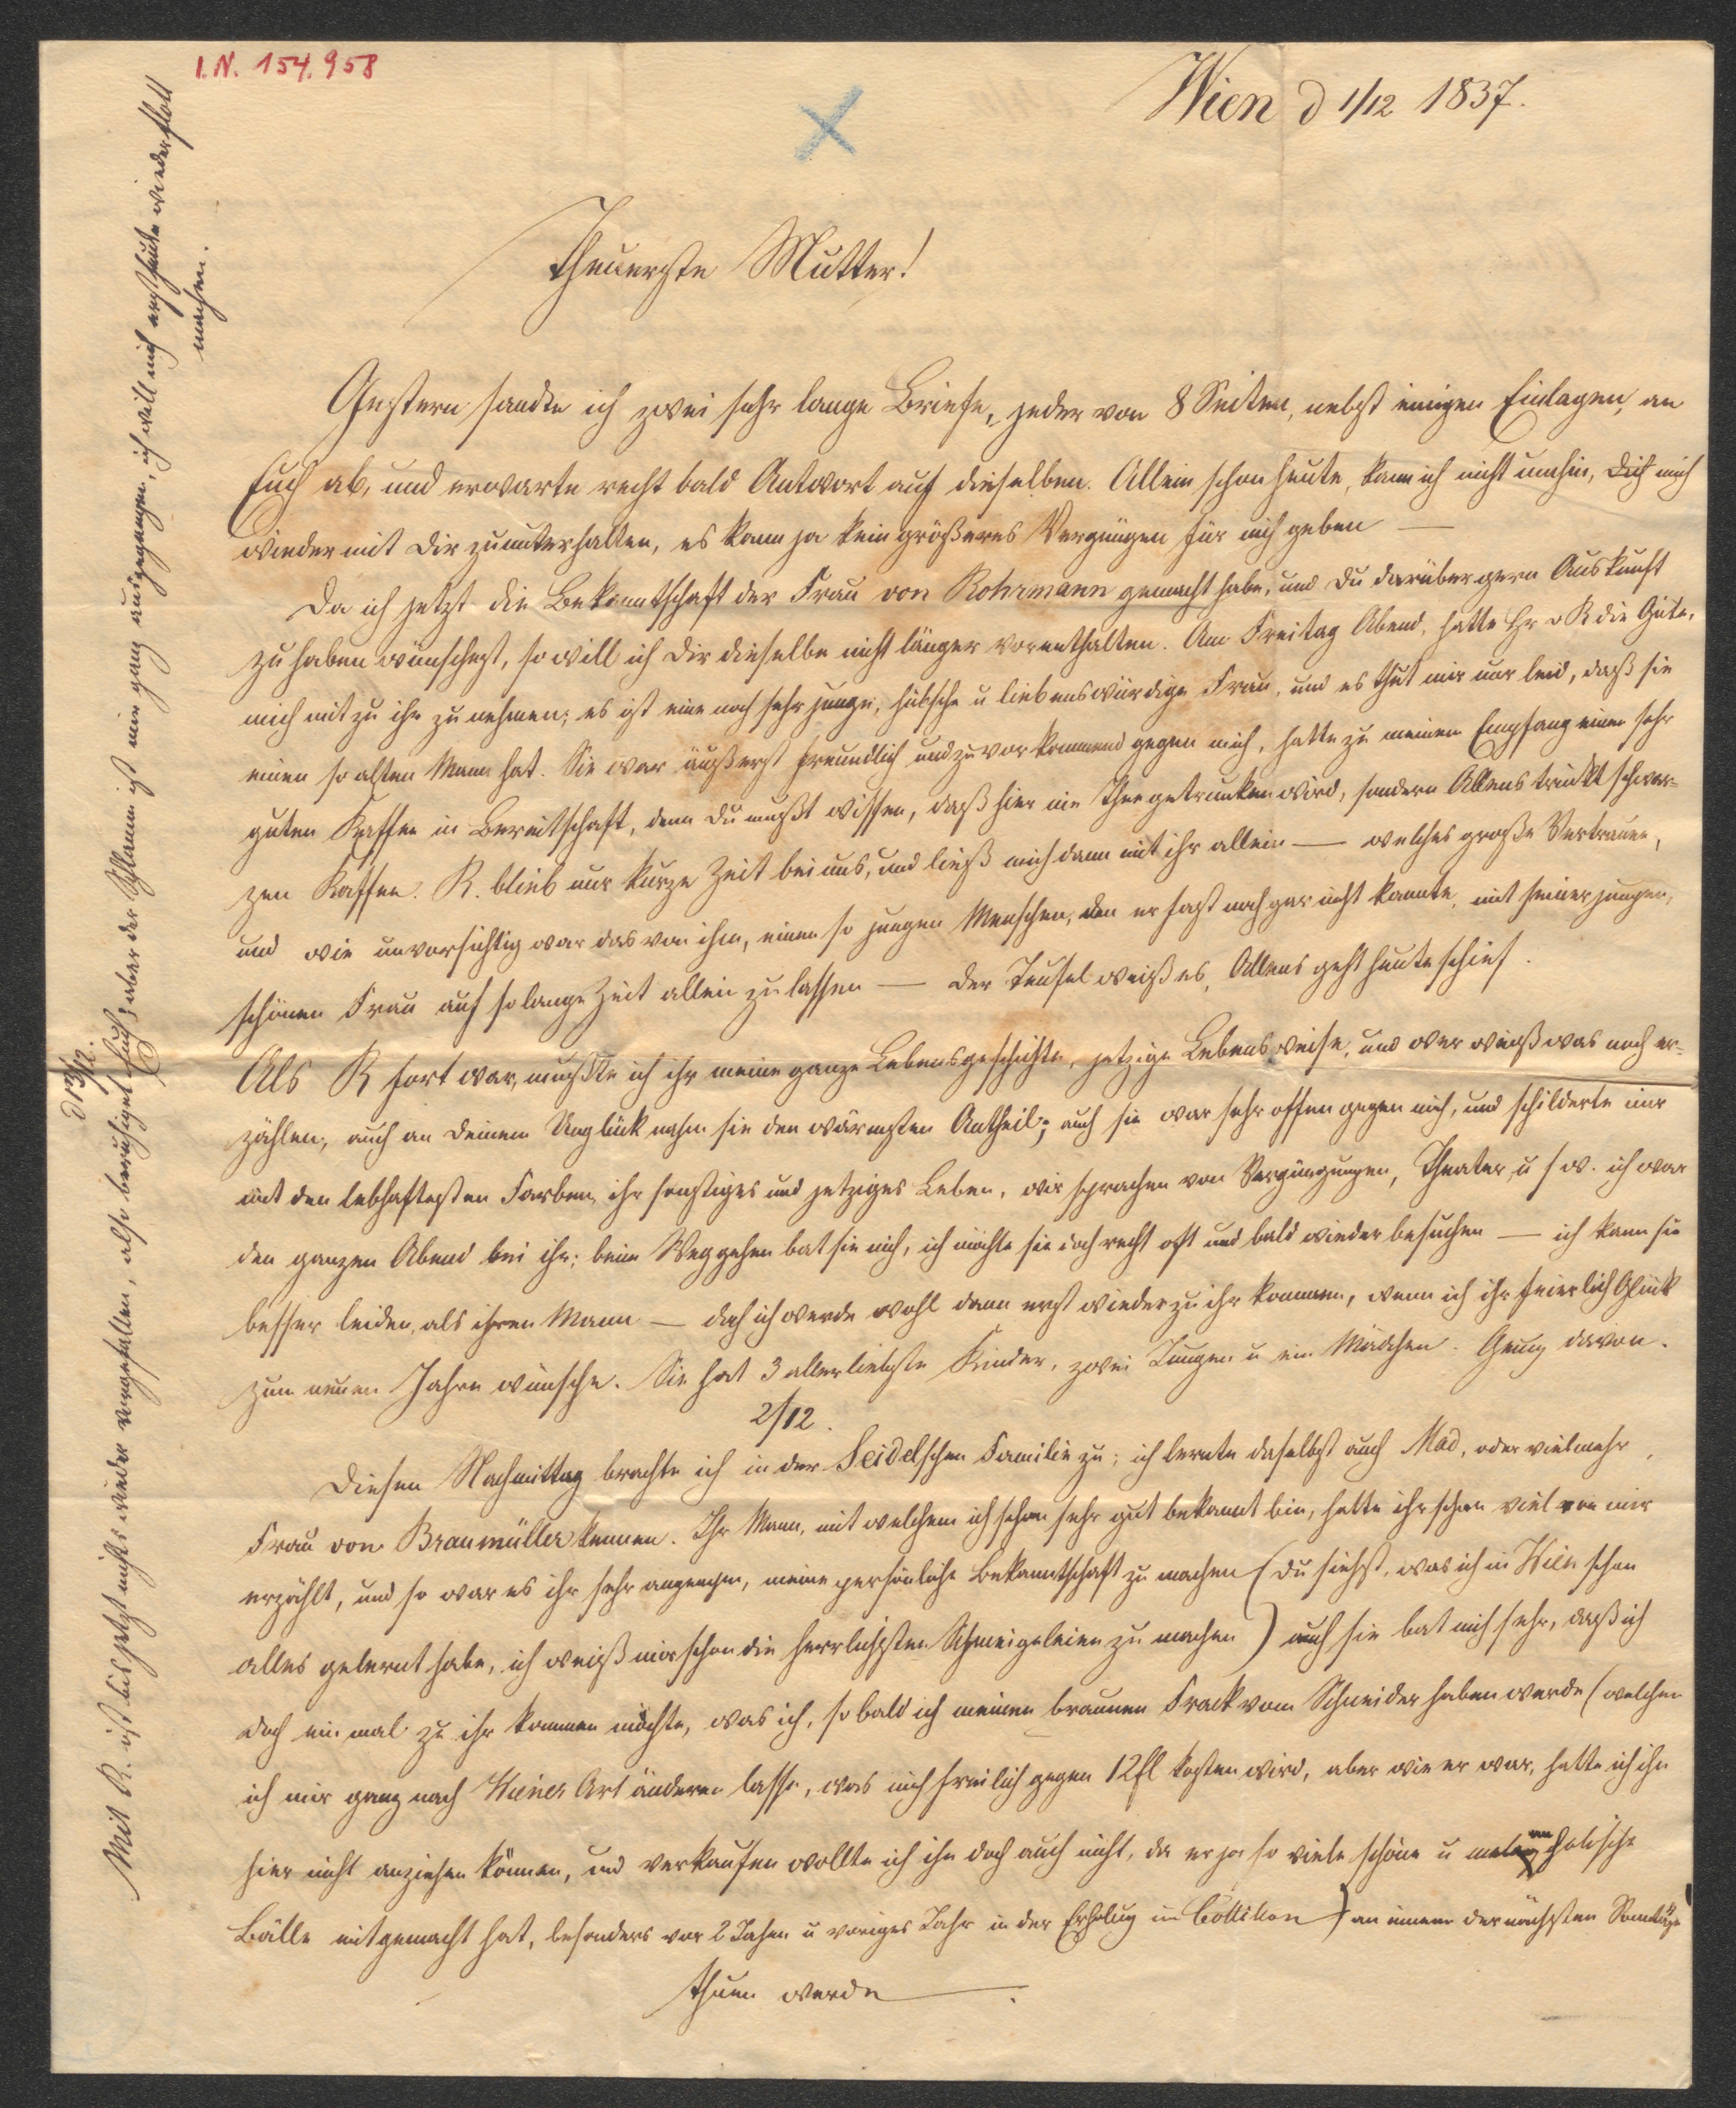 I.N. 154.958
Wien d 1/12 1837.
Theuerste Mutter!
Gestern sandte ich zwei sehr lange Briefe, jeder von 8 Seiten, nebst einigen Einlagen, an
Euch ab, und erwarte recht bald Antwort auf dieselben. Allein schon heute, kann ich nicht umhin, mich
wieder mit Dir zu unterhalten, es kann ja kein größeres Vergnügen für mich geben —
Da ich jetzt die Bekanntschaft der Frau von Rohrmann gemacht habe, und Du darüber gern Auskunft
zu haben wünschest, so will ich Dir dieselbe nicht länger vorenthalten. Am Freitag Abend, hatte Hr v R die Güte,
mich mit zu ihr zu nehmen; es ist eine noch sehr junge, hübsche u liebenswürdige Frau, und es thut mir nur leid, daß sie
einen so alten Mann hat. Sie war äußerst freundlich und zuvorkommend gegen mich, hatte zu meinem Empfang einen sehr
guten Kaffee in Bereitschaft, denn Du mußt wissen, daß hier nie Thee getrunken wird, sondern Allens trinkt schwar-
zen Kaffee. R. blieb nur kurze Zeit bei uns, und ließ mich dann mit ihr allein — welches große Vertrauen,
und wie unvorsichtig war das von ihm, einen so jungen Menschen, den er fast noch gar nicht kannte, mit seiner jungen,
schönen Frau auf so lange Zeit allein zu lassen — der Teufel weiß es, Allens geht heute schief.
Als R fort war, mußte ich ihr meine ganze Lebensgeschichte, jetzige Lebensweise, und wer weiß was noch er-
zählen, auch an Deinem Unglück nahm sie den wärmsten Antheil; auch sie war sehr offen gegen mich, und schilderte mir
mit den lebhaftesten Farben, ihr sonstiges und jetziges Leben, wir sprachen von Vergnügungen, Theater, u s w. ich war
den ganzen Abend bei ihr; beim Weggehen bat sie mich, ich möchte sie doch recht oft und bald wieder besuchen — ich kann sie
besser leiden, als ihren Mann — doch ich werde wohl dann erst wieder zu ihr kommen, wenn ich ihr feierlich Glück
zum neuen Jahre wünsche. Sie hat 3 allerliebste Kinder, zwei Jungen u ein Mädchen. Genug davon.
2/12.
Diesen Nachmittag brachte ich in der Seidelschen Familie zu; ich lernte daselbst auch Mad, oder vielmehr,
Frau von Braumüller kennen. Ihr Mann, mit welchem ich schon sehr gut bekannt bin, hatte ihr schon viel von mir
erzählt, und so war es ihr sehr angenehm, meine persönliche Bekanntschaft zu machen (Du siehst, was ich in Wien schon
alles gelernt habe, ich weiß mir schon die herrlichsten Schmeicheleien zu machen) auch sie bat mich sehr, daß ich
doch ein mal zu ihr kommen möchte, was ich, so bald ich meinen braunen Frack vom Schneider haben werde (welchen
ich mir ganz nach Wiener Art änderen lasse, was mich freilich gegen 12 fl kosten wird, aber wie er war, hatte ich ihn
hier nicht anziehen können, und verkaufen wollte ich ihn doch auch nicht, da er ja so viele schöne u melancholische
Bälle mitgemacht hat, besonders vor 2 Jahren u voriges Jahr in der Erholug im Cottillon) an einem der nächsten Sonntäge
thuen werde —.
d 13/12.
Mit R. ist bis jetzt nichts wieder vorgefallen, also beruhiget Euch; aber der Schlamm ist mir ganz ausgegangen, ich will mich erst heute wieder flott
machen.